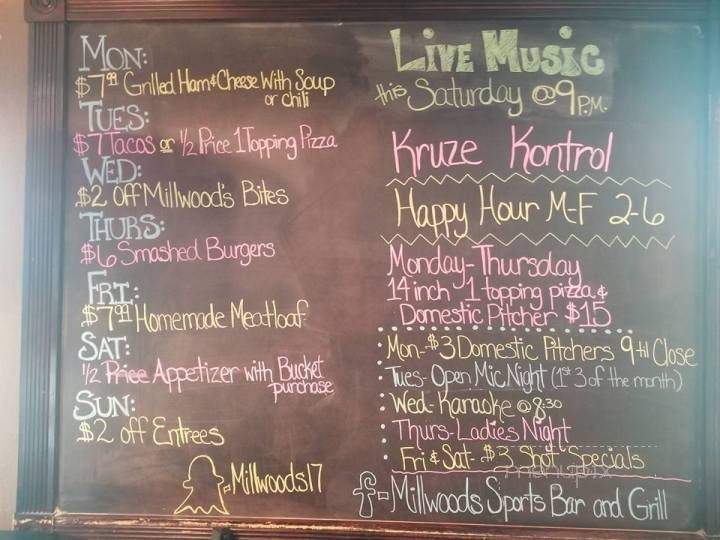 MON:
$7.99 Grilled Ham & Cheese With Soup
or chili
TUES:
$7 Tacos or 1/2 Price 1 Topping Pizza
WED:
$2 off Millwood's Bites
THURS:
$6 Smashed Burgers
FRI:
$7.99 Homemade Meatloaf
SAT:
1/2 Price Appetizer with Bucket
purchase
SUN:
$2 off Entrees
=Millwoods17
LIVE MUSIC
this Saturday @ 9 P.M.
Kruze Kontrol
Happy Hour M-F 2-6
Monday-Thursday
14 inch 1 topping pizza &
Domestic Pitcher $15
Mon-$3 Domestic Pitchers 9-til Close
Tues- Open Mic Night (1st 3 of the month)
Wed- Karaoke @ 8:30
Thurs- Ladies Night
Fri & Sat- $3 Shot Specials
f-Millwoods Sports Bar and Grill